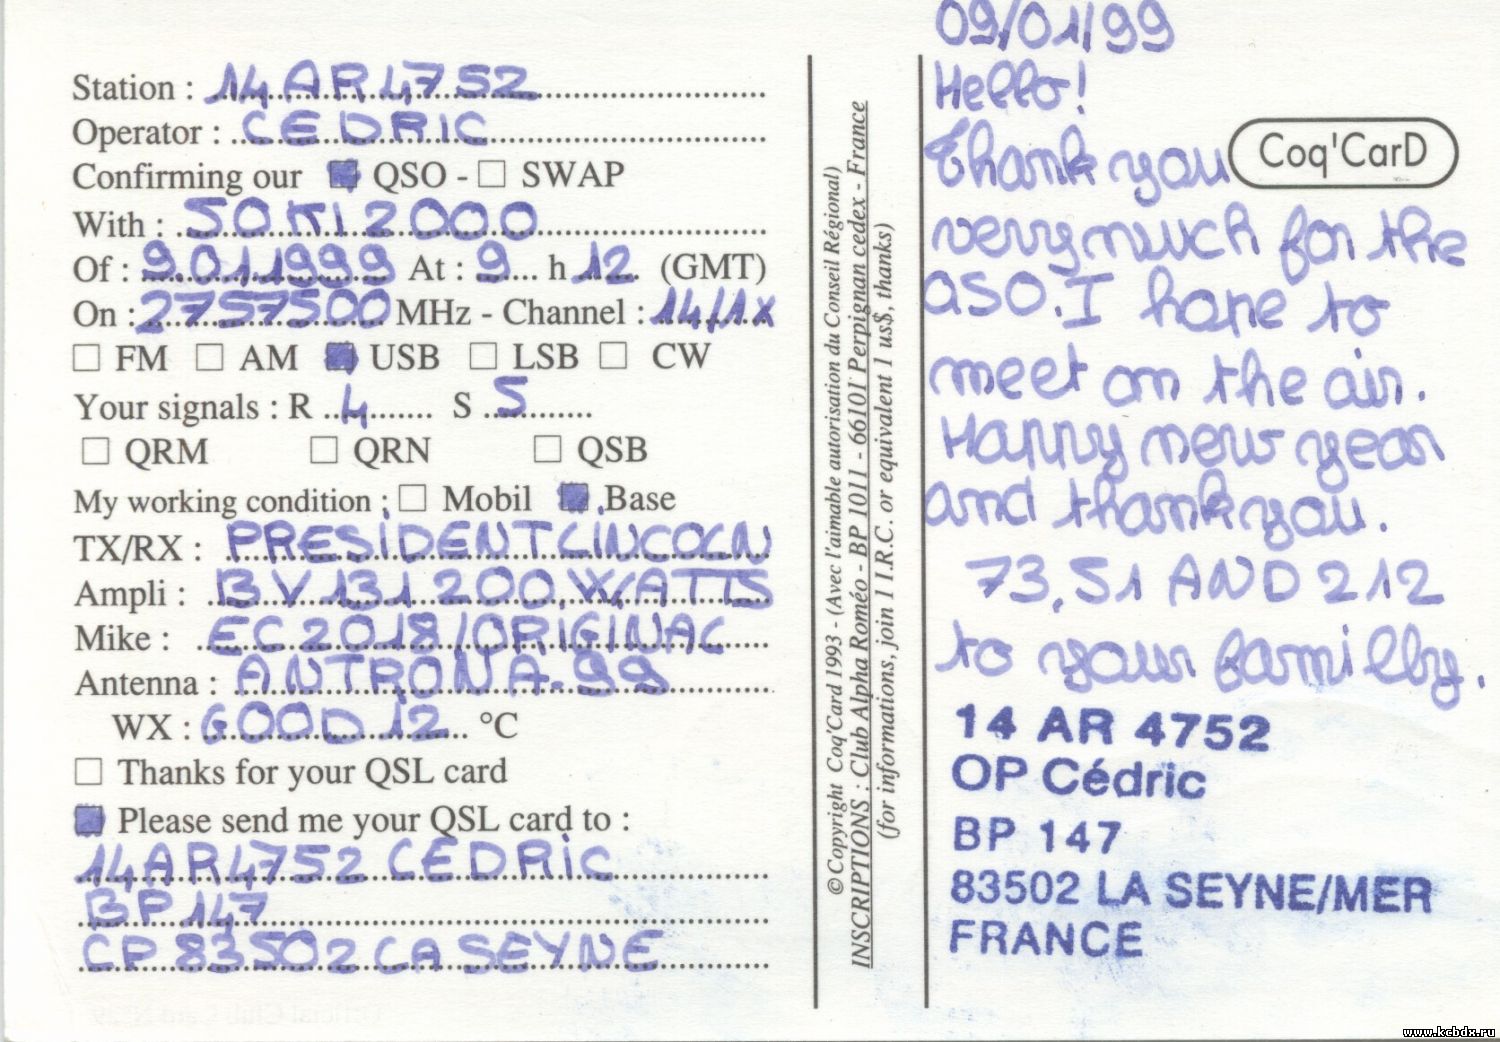 Station : 14 AR 4752
Operator : CEDRIC
Confirming our QSO - SWAP
With : 50 KI 2000
Of : 9.01.1999 At : 9 h 12 (GMT)
On : 2757500 MHz - Channel : 14/1X
FM AM USB LSB CW
Your signals : R 4 S 5
QRM QRN QSB
My working condition : Mobil Base
TX/RX : PRESIDENT LINCOLN
Ampli : BV 131 200 WATTS
Mike : EC2018/ORIGINAL
Antenna : ANTRON A-99
WX : GOOD 12 °C
Thanks for your QSL card
Please send me your QSL card to :
14AR4752 CEDRIC
BP 147
CP 83502 LA SEYNE
© Copyright Coq'Card 1993 - (Avec l'aimable autorisation du Conseil Régional)
INSCRIPTIONS : Club Alpha Roméo - BP 1011 - 66101 Perpignan cedex - France
(for informations, join 1 I.R.C. or equivalent 1 us$, thanks)
09/01/99
Hello!
Thank you
Coq'CarD
very much for the
QSO. I hope to
meet on the air.
Happy new year
and thank you.
73, 51 AND 212
to your familly.
14 AR 4752
OP Cédric
BP 147
83502 LA SEYNE/MER
FRANCE
www.kcbdx.ru